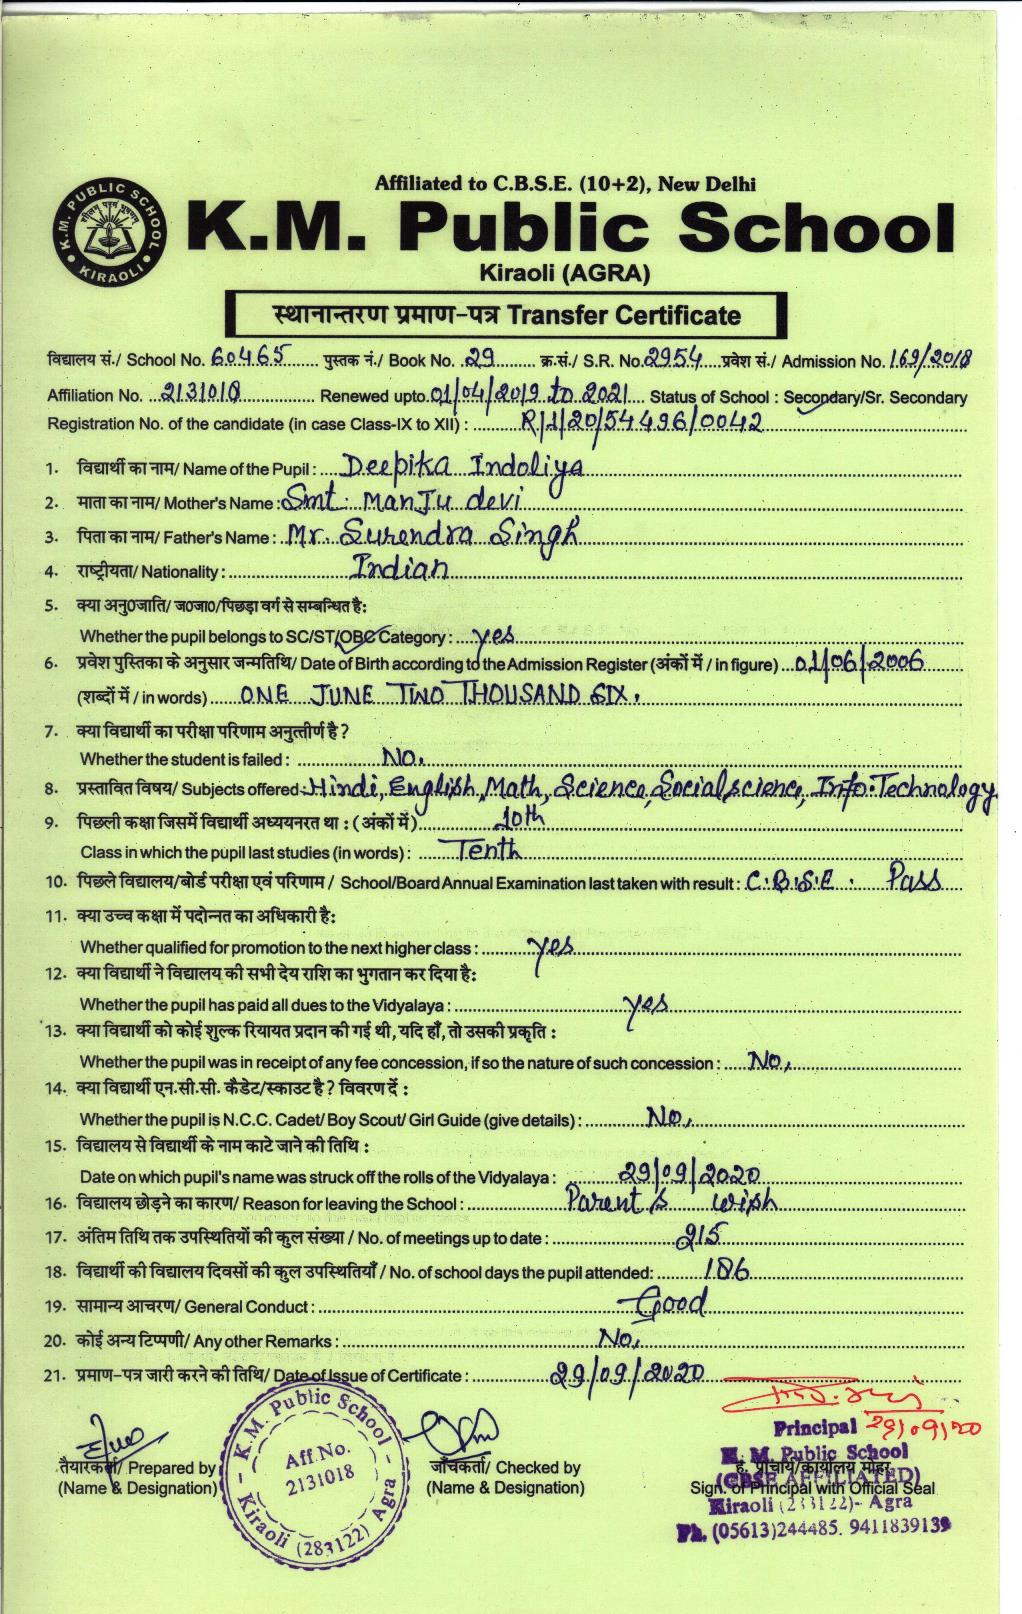 Affiliated to C.B.S.E. (10+2), New Delhi
K.M. PUBLIC SCHOOL
KIRAOLI
K.M. Public School
Kiraoli (AGRA)
स्थानान्तरण प्रमाण-पत्र Transfer Certificate
विद्यालय सं./ School No. 60465 पुस्तक नं./ Book No. 29 क्र.सं./ S.R. No. 2954 प्रवेश सं./ Admission No. 169/2018
Affiliation No. 2131018 Renewed upto 01/04/2019 to 2021 Status of School : Secondary/Sr. Secondary
Registration No. of the candidate (in case Class-IX to XII) : R/1/20/54496/0042
1. विद्यार्थी का नाम/ Name of the Pupil : Deepika Indoliya
2. माता का नाम/ Mother's Name : Smt. Manju devi
3. पिता का नाम/ Father's Name : Mr. Surendra Singh
4. राष्ट्रीयता/ Nationality : Indian
5. क्या अनु0जाति/ ज0जा0/पिछड़ा वर्ग से सम्बन्धित है:
Whether the pupil belongs to SC/ST/OBC Category : yes
6. प्रवेश पुस्तिका के अनुसार जन्मतिथि/ Date of Birth according to the Admission Register (अंकों में / in figure) 01/06/2006
(शब्दों में / in words) ONE JUNE TWO THOUSAND SIX.
7. क्या विद्यार्थी का परीक्षा परिणाम अनुत्तीर्ण है ?
Whether the student is failed : NO.
8. प्रस्तावित विषय/ Subjects offered : Hindi, English, Math, Science, Social science, Info. Technology
9. पिछली कक्षा जिसमें विद्यार्थी अध्ययनरत था : (अंकों में) 10th
Class in which the pupil last studies (in words) : Tenth
10. पिछले विद्यालय/बोर्ड परीक्षा एवं परिणाम / School/Board Annual Examination last taken with result : C.B.S.E. Pass
11. क्या उच्च कक्षा में पदोन्नत का अधिकारी है:
Whether qualified for promotion to the next higher class : yes
12. क्या विद्यार्थी ने विद्यालय की सभी देय राशि का भुगतान कर दिया है:
Whether the pupil has paid all dues to the Vidyalaya : yes
13. क्या विद्यार्थी को कोई शुल्क रियायत प्रदान की गई थी, यदि हाँ, तो उसकी प्रकृति :
Whether the pupil was in receipt of any fee concession, if so the nature of such concession : No.
14. क्या विद्यार्थी एन.सी.सी. कैडेट/स्काउट है ? विवरण दें :
Whether the pupil is N.C.C. Cadet/ Boy Scout/ Girl Guide (give details) : No.
15. विद्यालय से विद्यार्थी के नाम काटे जाने की तिथि :
Date on which pupil's name was struck off the rolls of the Vidyalaya : 29/09/2020
16. विद्यालय छोड़ने का कारण/ Reason for leaving the School : Parent's wish
17. अंतिम तिथि तक उपस्थितियों की कुल संख्या / No. of meetings up to date : 215
18. विद्यार्थी की विद्यालय दिवसों की कुल उपस्थितियाँ / No. of school days the pupil attended: 186
19. सामान्य आचरण/ General Conduct : Good
20. कोई अन्य टिप्पणी/ Any other Remarks : No.
21. प्रमाण-पत्र जारी करने की तिथि/ Date of Issue of Certificate : 29/09/2020
K.M. Public School
Aff.No.
2131018
Kiraoli (283122) Agra
Principal 29/09/20
K. M. Public School
(CBSE AFFILIATED)
Kiraoli (283122)- Agra
Ph. (05613)244485. 9411839139
तैयारकर्ता/ Prepared by जाँचकर्ता/ Checked by ह. प्राचार्य/कार्यालय मोहर
(Name & Designation) (Name & Designation) Sign. of Principal with Official Seal